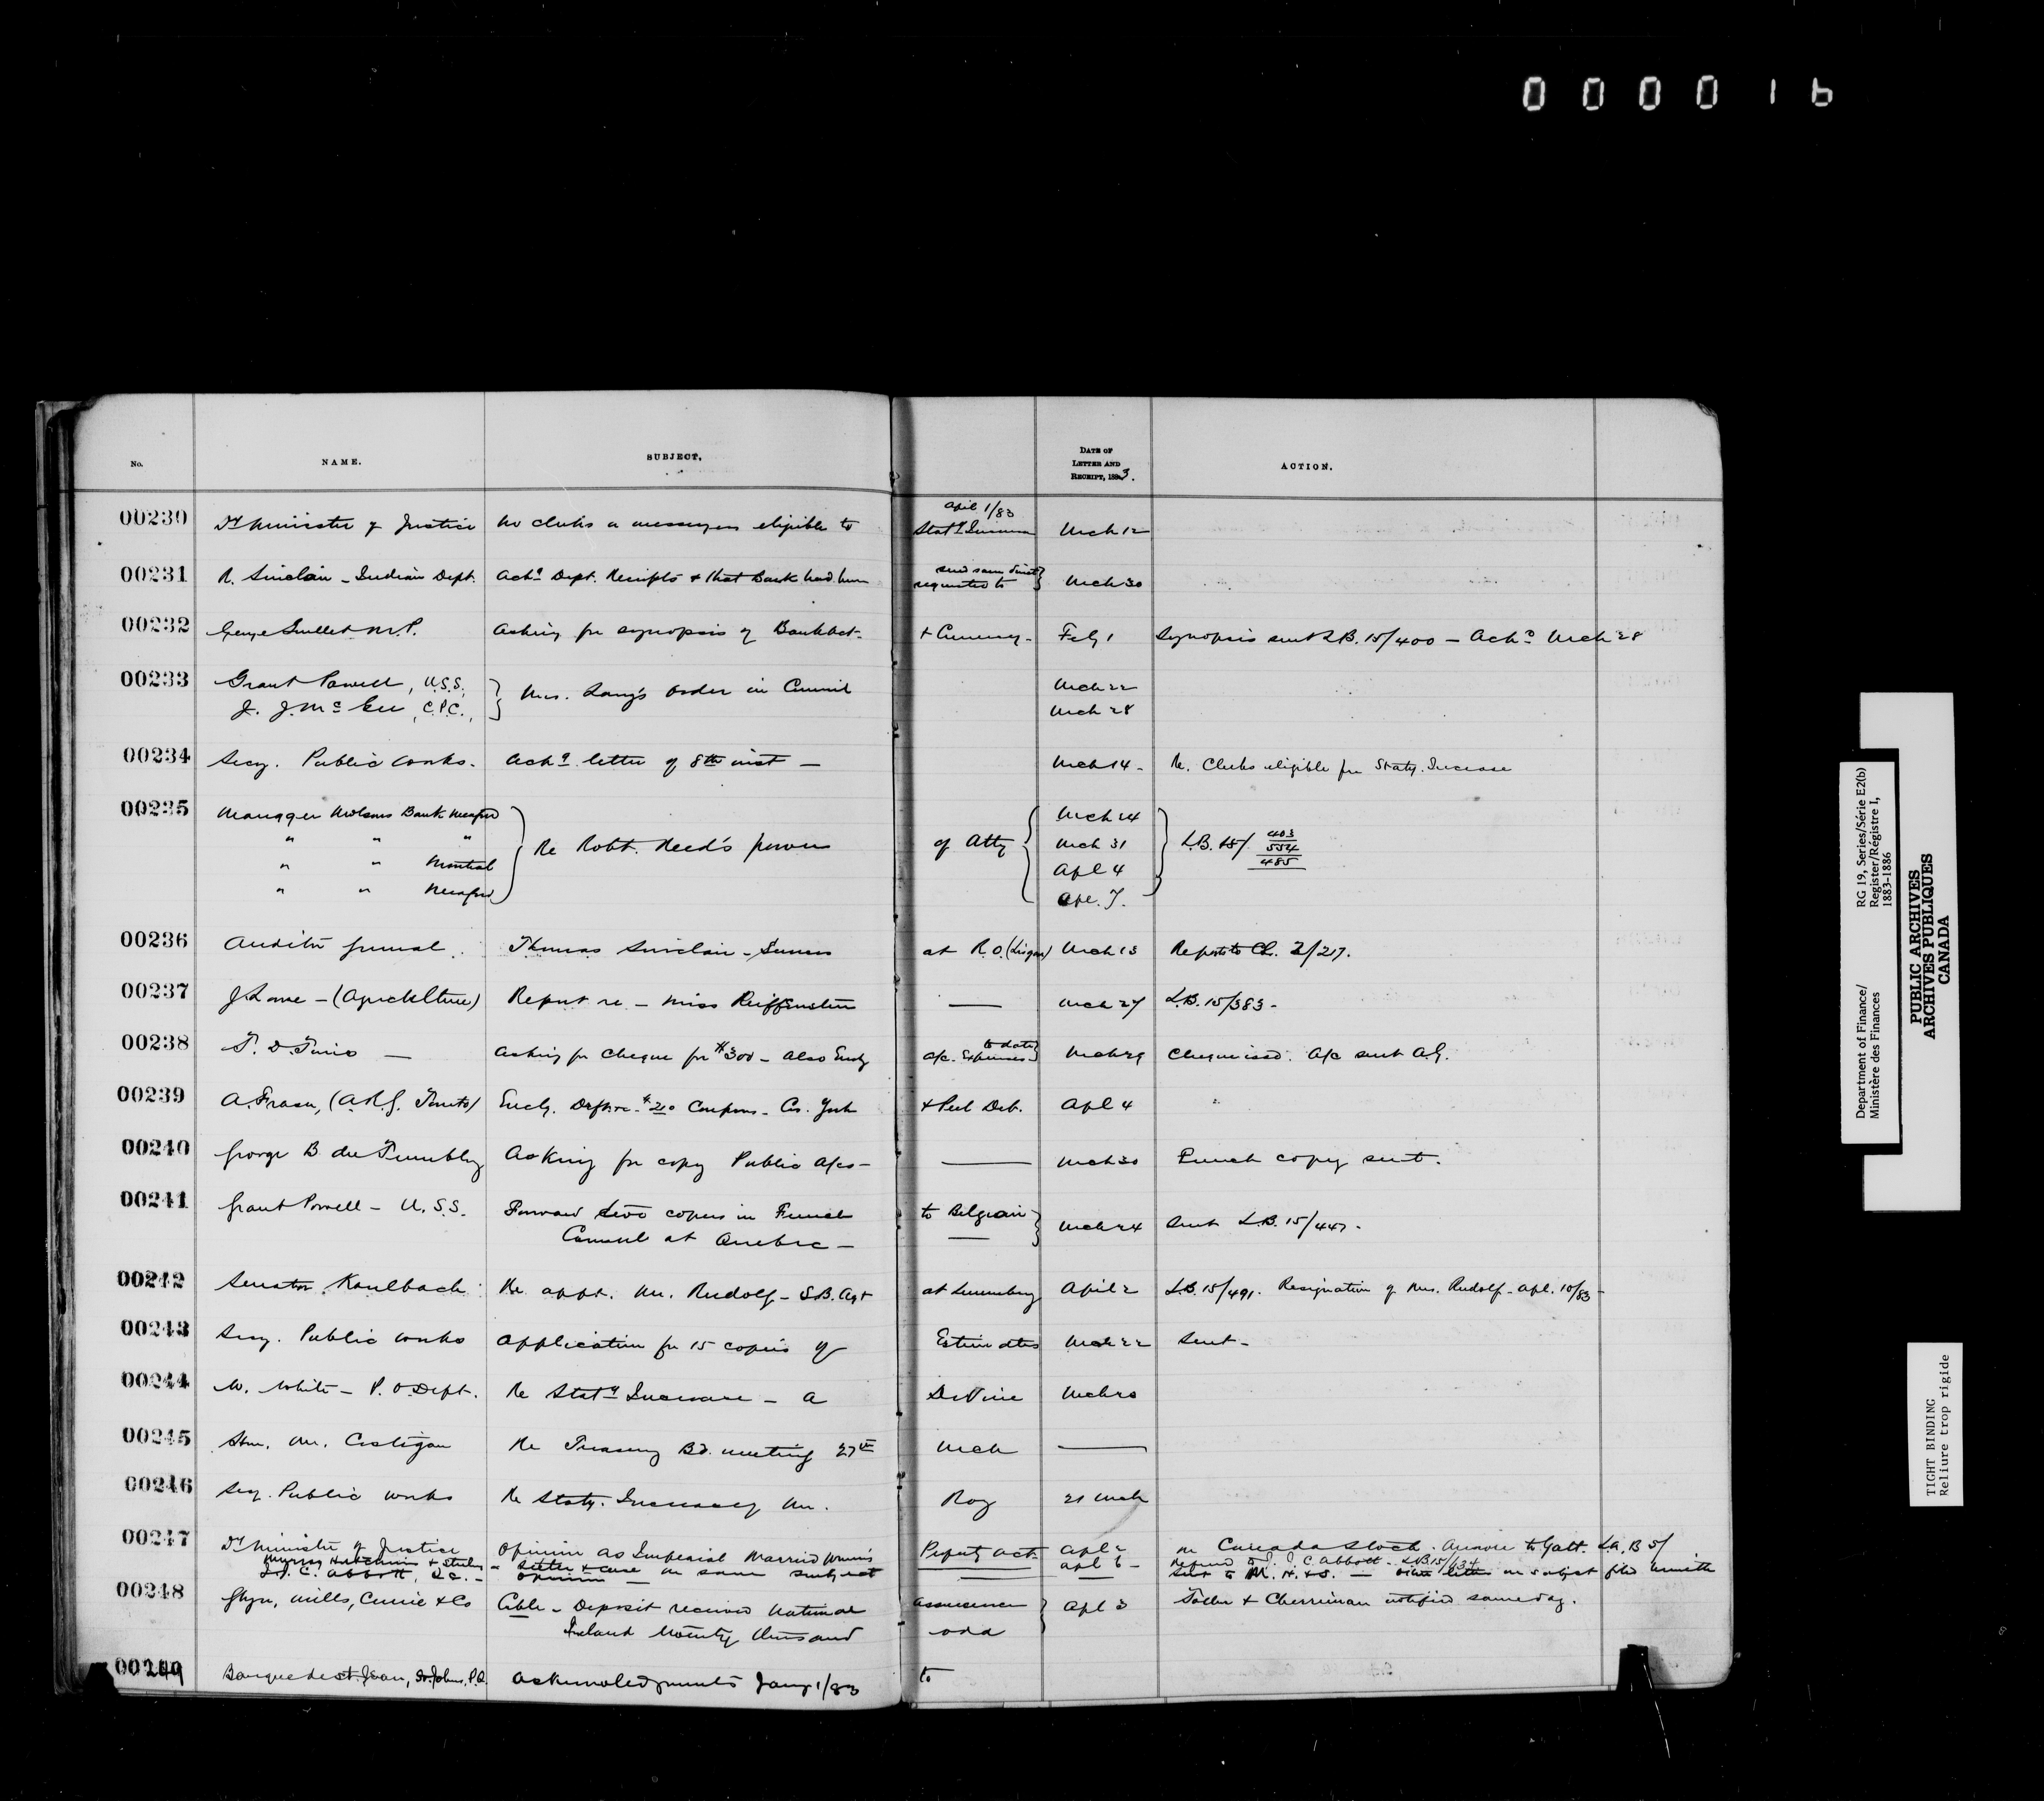 000016
No.
NAME.
SUBJECT.
DATE OF
LETTER AND
RECEIPT, 1883.
ACTION.
00230 Dy Minister of Justice No clerks or messengers eligible to April 1/83
Staty Increase Mch 12
00231 R. Sinclair - Indian Dept. Ackg Dept. Receipts & that Bank had been requested to send same direct } Mch 30
00232 George Guillet M.P. Asking for synopsis of Bank Act - & Currency - Feby 1 Synopsis sent LB. 15/400 - Ackd Mch 28
00233 Grant Powell, U.S.S. } Mrs. Lang's Order in Council Mch 22
J. J. McGee, C.P.C., Mch 28
00234 Secy. Public Works. Ackg letter of 8th inst - Mch 14 - Re. Clerks eligible for Staty. Increase
00235 Manager Molsons Bank Meaford Mch 24
" " " } Re Robt. Reed's power of Atty { Mch 31 } L.B. 15/ 403
554
485
" " Montreal Apl 4
" " Meaford Apl. 7.
00236 Auditor General. Thomas Sinclair - Services at R.O. (Lisgar) Mch 13 Report to Ch. 2/217.
00237 J. Lowe - (Agriculture) Report re - Miss Reiffenstein — Mch 27 L.B. 15/383 -
00238 T. D. Tims — Asking for cheque for $300 - also Encly a/c. Expenses to date } Mch 29 Cheque issd. A/c sent A.G.
00239 A. Fraser, (A.R.G. Toronto) Encly. Dft. re $20 Coupons - Co. York & Peel Deb. Apl 4
00240 George B. du Tremblay Asking for copy Public A/cs - — Mch 30 French copy sent.
00241 Grant Powell - U.S.S. Forward two copies in French to Belgian } Mch 24 Sent L.B. 15/447 -
Consul at Quebec -
00242 Senator Kaulbach Re appt. Mr. Rudolf - S.B. Agt at Lunenburg April 2 L.B. 15/491. Resignation of Mr. Rudolf - Apl. 10/83 -
00243 Secy. Public Works Application for 15 copies of Estimates Mch 22 Sent -
00244 W. White - P.O. Dept. Re Staty Increase - A DeVine Mch 20
00245 Hon. Mr. Costigan Re Treasury Bd. meeting 27th Mch —
00246 Secy. Public Works Re Staty. Increase of Mr. Roy 21 Mch
00247 Dy Minister of Justice Opinion as Imperial Married Women's Property Act Apl 2 on Canada Stock. Answer to Galt. L.B 5/
J. J. C. Abbott, Q.C. - Opinion - on same subject Apl 6 - Referred to J. J. C. Abbott - LB 15/434
Sent to M. H. & S. - other letters on subject filed herewith
00248 Glyn, Mills, Currie & Co Cable - Deposit received National Assurance } Apl 3 Toller & Cherriman notified same day.
Ireland twenty thousand odd
00249 Banque de St. Jean, St. Johns, P.Q. Acknowledgments Jany 1/83 to
Department of Finance/
Ministère des Finances
RG 19, Series/Série E2(b)
Register/Régistre I,
1883-1886
PUBLIC ARCHIVES
ARCHIVES PUBLIQUES
CANADA
TIGHT BINDING
Reliure trop rigide